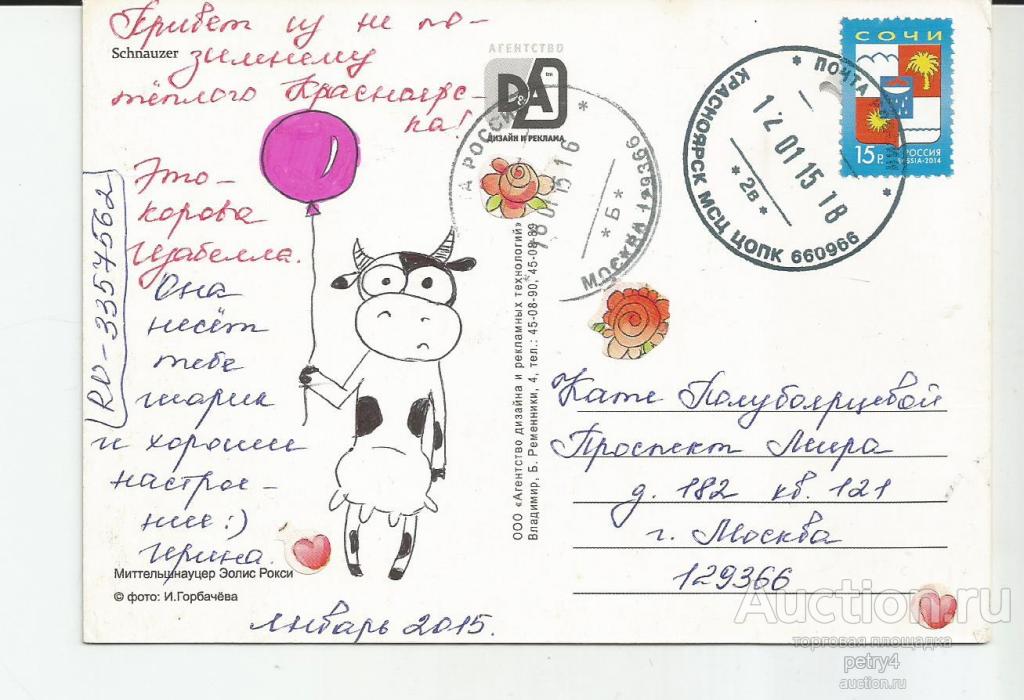 Привет из не по-
зимнему
тёплого Красноярс-
ка!
Schnauzer
Это -
корова
Изабелла.
Она
несёт
тебе
шарик
и хорошее
настрое-
ние :)
Ирина.
RU-3357562
Миттельшнауцер Эолис Рокси
© фото: И.Горбачёва
январь 2015.
АГЕНТСТВО
D&A
ДИЗАЙН И РЕКЛАМА
ООО «Агентство дизайна и рекламных технологий»
Владимир, Б. Ременники, 4, тел.: 45-08-90, 45-08-89
МОСКВА 129366
*Б*
* ПОЧТА
КРАСНОЯРСК МСЦ ЦОПК 660966
12 01 15 18
*2в*
СОЧИ
15 р.
РОССИЯ
RUSSIA·2014
Кате Полубоярцевой
Проспект Мира
д. 182 кв. 121
г. Москва
129366
Auction.ru
торговая площадка
petry4
auction.ru